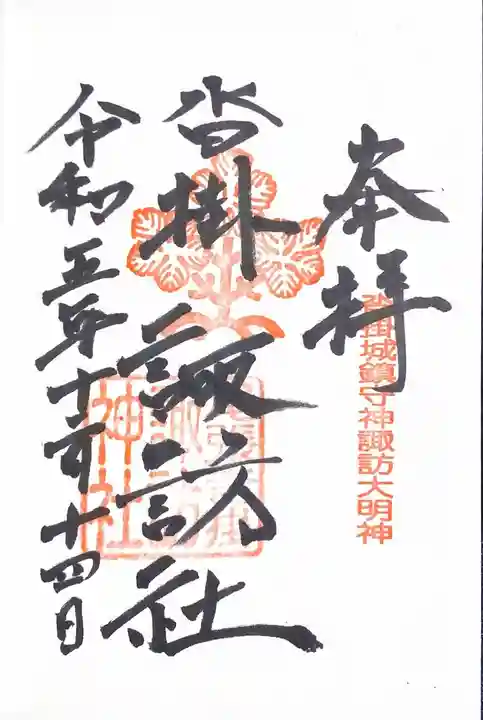 奉拝
沓掛城鎮守神諏訪大明神
沓掛諏訪社
令和五年十一月十四日
神社